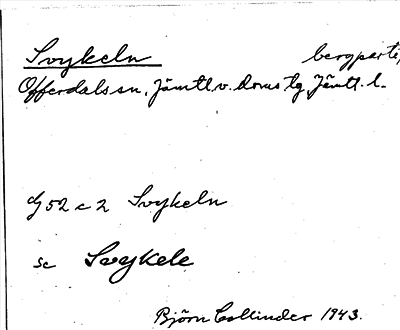 Svykeln bergparti,
Offerdals sn. Jämtl. v. doms lg Jämtl. l.
G 52 c 2 Svykeln
se Svykele
Björn Collinder 1943.